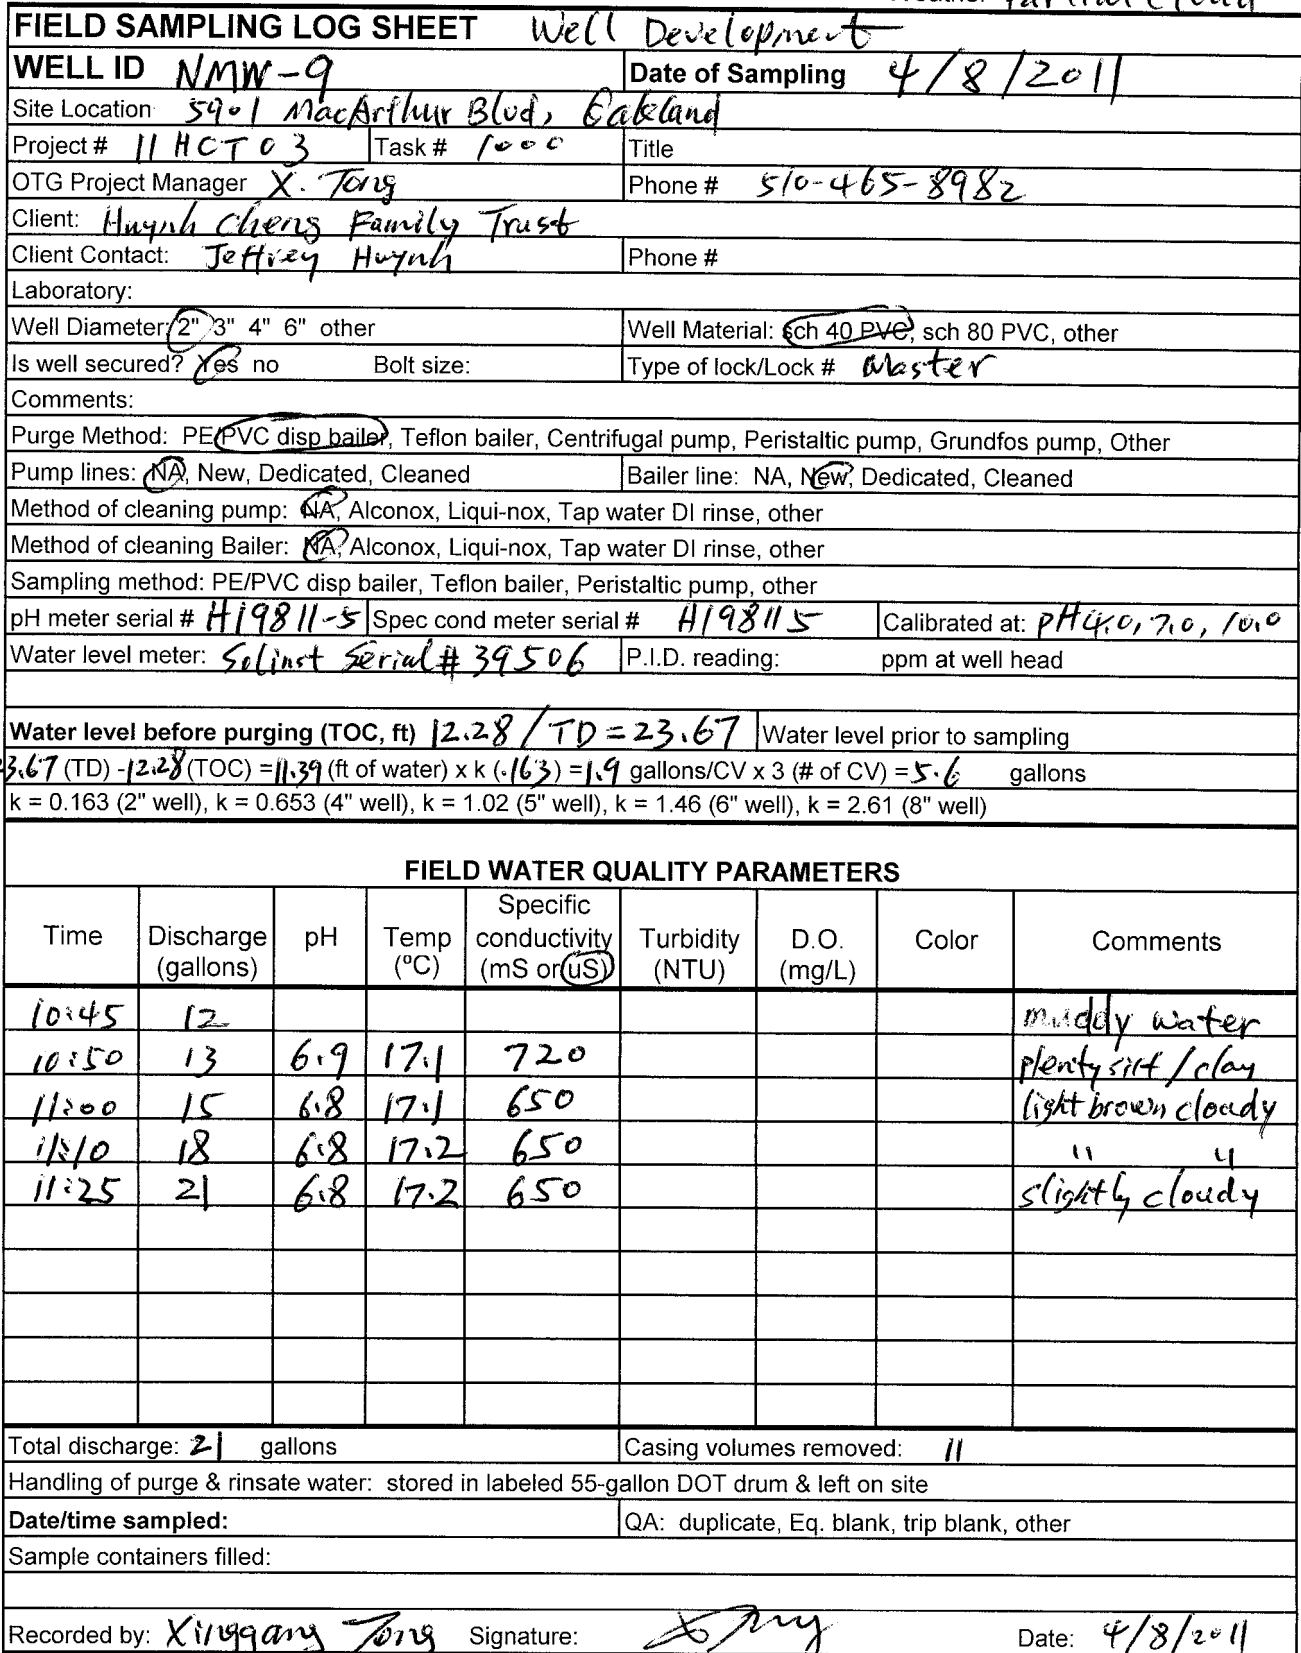 FIELD SAMPLING LOG SHEET Well Development
WELL ID NMW-9 Date of Sampling 4/8/2011
Site Location 5901 MacArthur Blvd, Oakland
Project # 11HCT03 Task # 1000 Title
OTG Project Manager X. Tong Phone # 510-465-8982
Client: Huynh Cheng Family Trust
Client Contact: Jeffrey Huynh Phone #
Laboratory:
Well Diameter: 2" 3" 4" 6" other Well Material: sch 40 PVC, sch 80 PVC, other
Is well secured? Yes no Bolt size: Type of lock/Lock # Master
Comments:
Purge Method: PE/PVC disp bailer, Teflon bailer, Centrifugal pump, Peristaltic pump, Grundfos pump, Other
Pump lines: NA, New, Dedicated, Cleaned Bailer line: NA, New, Dedicated, Cleaned
Method of cleaning pump: NA, Alconox, Liqui-nox, Tap water DI rinse, other
Method of cleaning Bailer: NA, Alconox, Liqui-nox, Tap water DI rinse, other
Sampling method: PE/PVC disp bailer, Teflon bailer, Peristaltic pump, other
pH meter serial # HI9811-5 Spec cond meter serial # HI98115 Calibrated at: pH4.0, 7.0, 10.0
Water level meter: Solinst Serial# 39506 P.I.D. reading: ppm at well head
Water level before purging (TOC, ft) 12.28 / TD = 23.67 Water level prior to sampling
3.67 (TD) - 12.28 (TOC) = 11.39 (ft of water) x k (.163) = 1.9 gallons/CV x 3 (# of CV) = 5.6 gallons
k = 0.163 (2" well), k = 0.653 (4" well), k = 1.02 (5" well), k = 1.46 (6" well), k = 2.61 (8" well)
FIELD WATER QUALITY PARAMETERS
Time Discharge (gallons) pH Temp (ºC) Specific conductivity (mS or uS) Turbidity (NTU) D.O. (mg/L) Color Comments
10:45 12 muddy water
10:50 13 6.9 17.1 720 plenty silt / clay
11:00 15 6.8 17.1 650 light brown cloudy
11:10 18 6.8 17.2 650 " "
11:25 21 6.8 17.2 650 slightly cloudy
Total discharge: 21 gallons Casing volumes removed: 11
Handling of purge & rinsate water: stored in labeled 55-gallon DOT drum & left on site
Date/time sampled: QA: duplicate, Eq. blank, trip blank, other
Sample containers filled:
Recorded by: Xinggang Tong Signature: X Tong Date: 4/8/2011